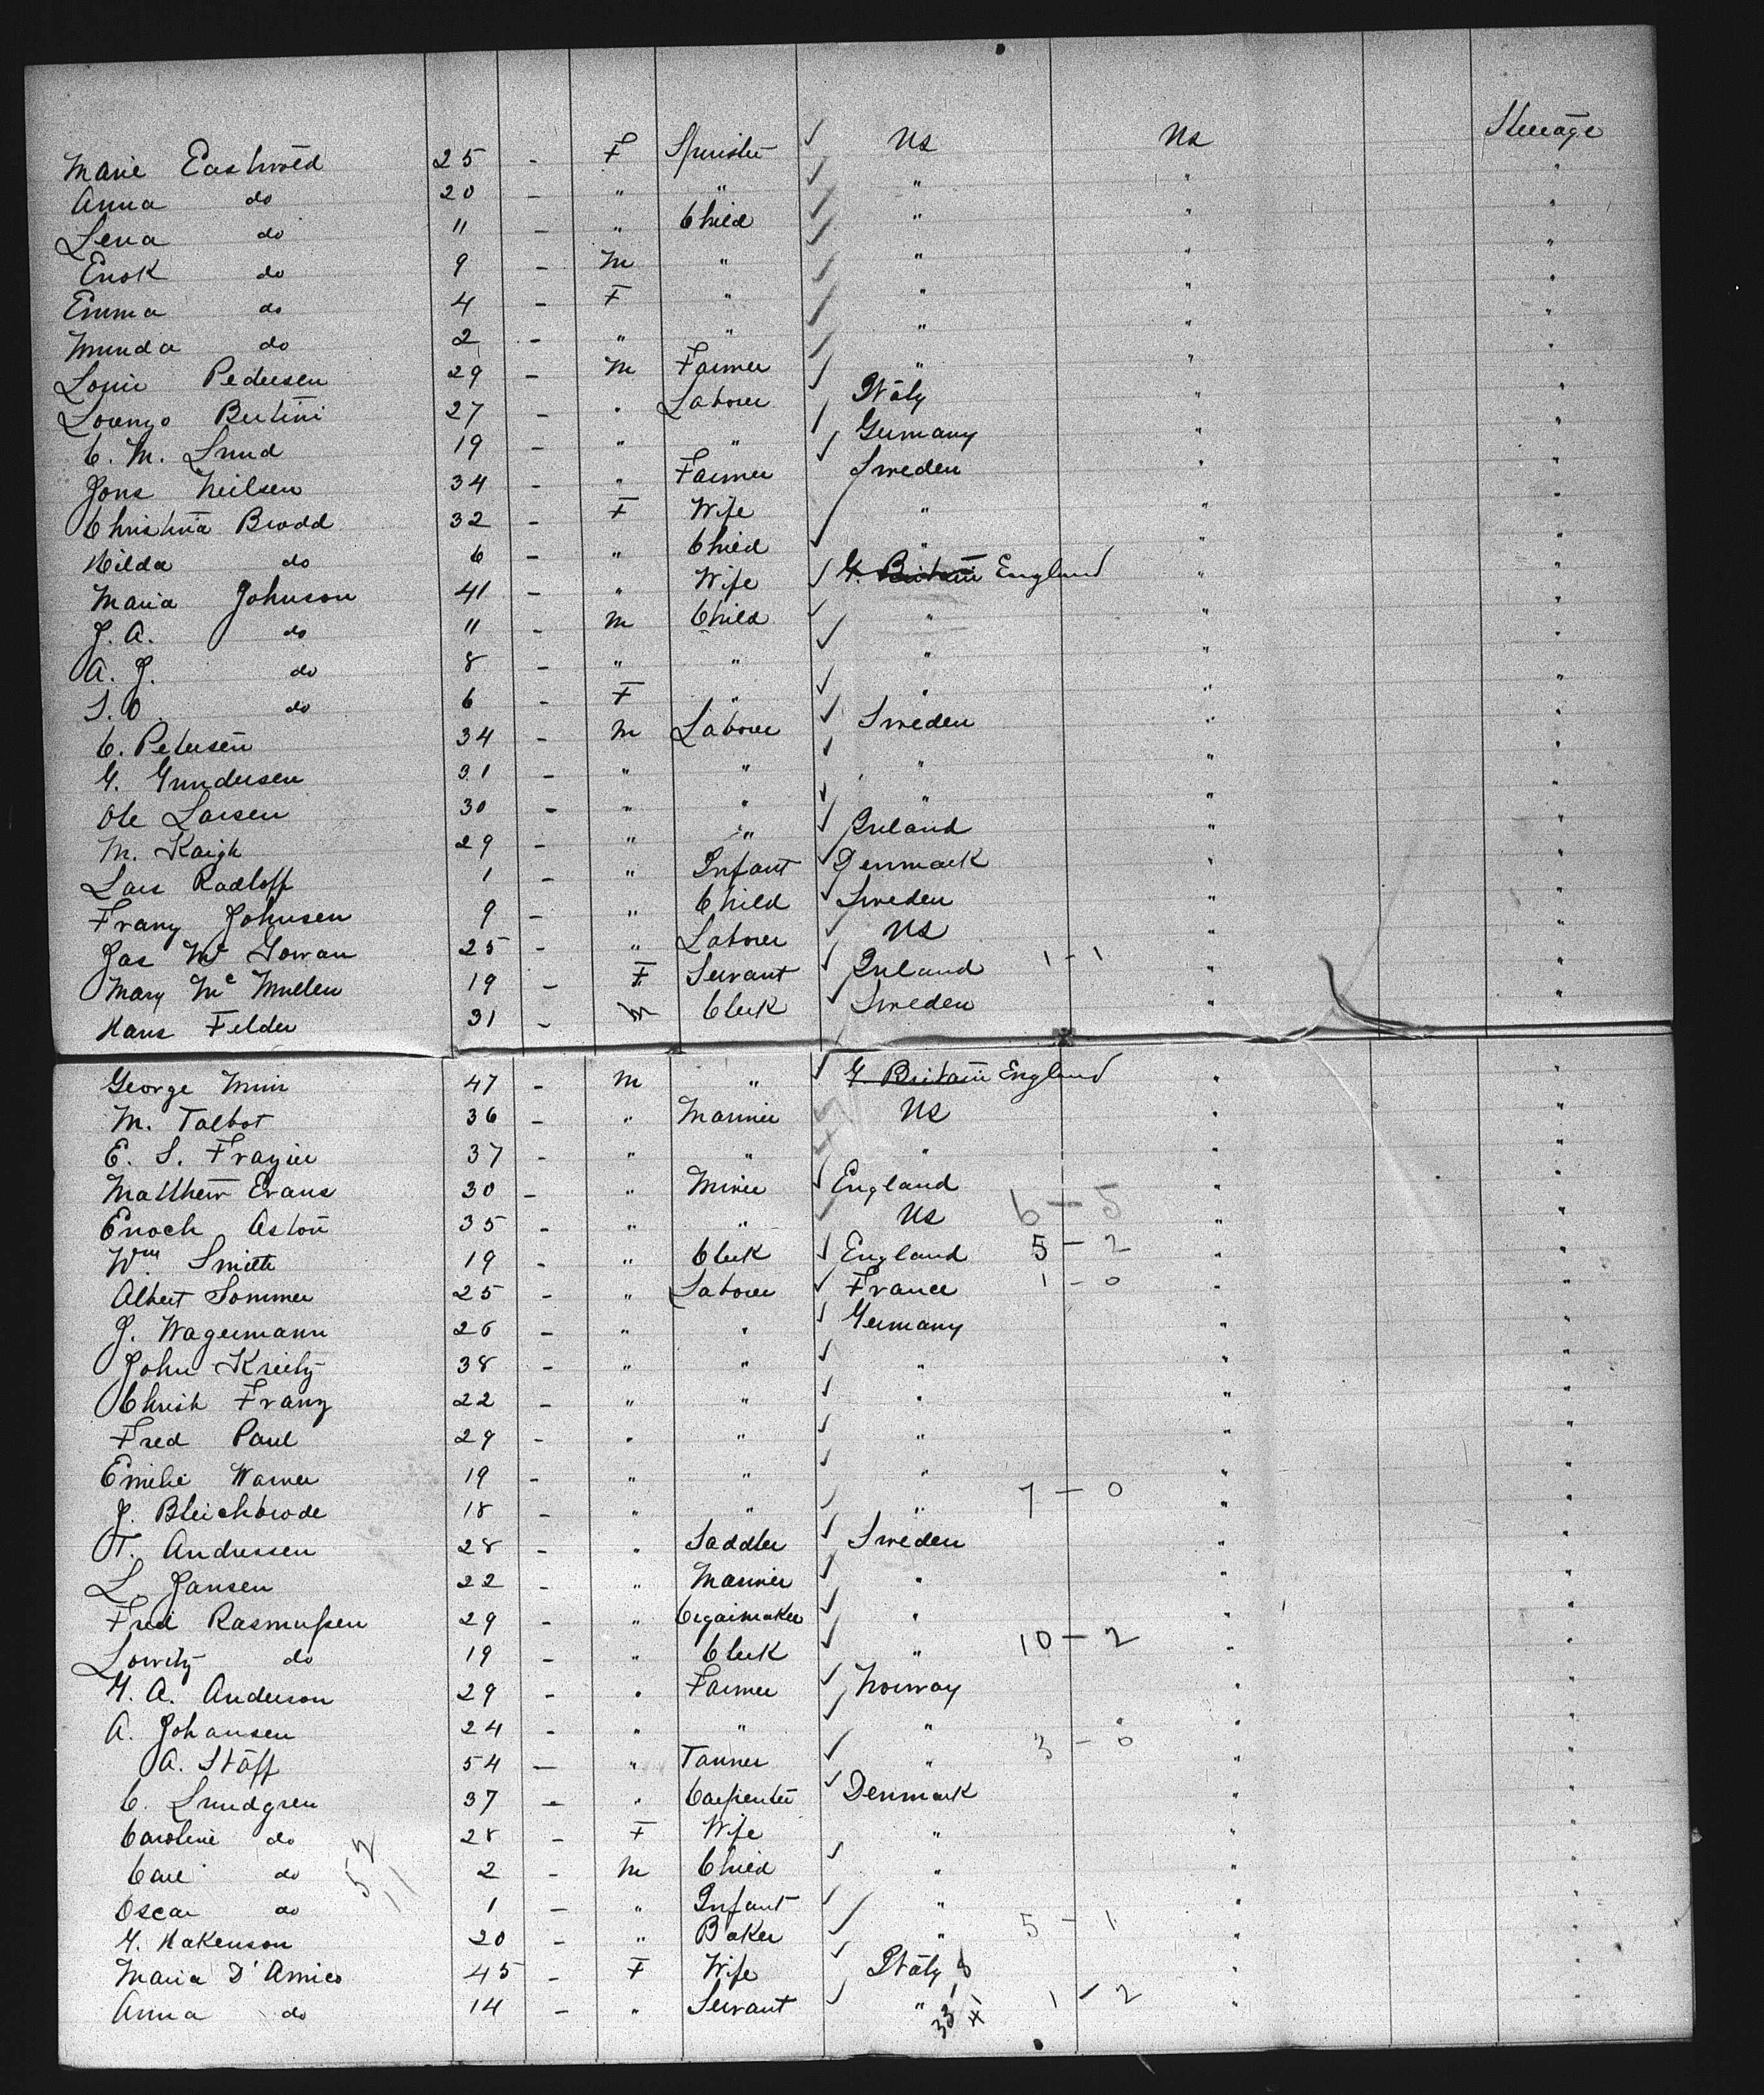 Marie Eastwood 25 - F Spinster US US Steerage
Anna do 20 - " " " " "
Lena do 11 - " Child " " "
Enok do 9 - M " " " "
Emma do 4 - F " " " "
Munda do 2 - " " " " "
Louis Pedersen 29 - M Farmer " " "
Lorenzo Bertini 27 - " Laborer Italy " "
C. M. Lund 19 - " " Germany " "
Jons Neilsen 34 - " Farmer Sweden " "
Christina Brodd 32 - F Wife " " "
Hilda do 6 - " Child " " "
Maria Johnson 41 - " Wife G. Britain England " "
J. A. do 11 - M Child " " "
A. J. do 8 - " " " " "
S. O. do 6 - F " " " "
C. Petersen 34 - M Laborer Sweden " "
G. Gundersen 31 - " " " " "
Ole Larsen 30 - " " " " "
M. Kaigh 29 - " " Ireland " "
Lars Radloff 1 - " Infant Denmark " "
Franz Johnsen 9 - " Child Sweden " "
Jas McGowan 25 - " Laborer US " "
Mary McMullen 19 - F Servant Ireland 1-1 " "
Hans Felder 31 - M Clerk Sweden " "
George Muir 47 - M " G. Britain England " "
M. Talbot 36 - " Mariner US " "
E. S. Frazier 37 - " " " " "
Matthew Evans 30 - " Miner England " "
Enoch Aston 35 - " " US 6-5 " "
Wm Smith 19 - " Clerk England 5-2 " "
Albert Sommer 25 - " Laborer France 1-0 " "
J. Wagermann 26 - " " Germany " "
John Kreitz 38 - " " " " "
Christ Franz 22 - " " " " "
Fred Paul 29 - " " " " "
Emilie Warner 19 - " " " " "
J. Bleichbrode 18 - " " " 7-0 " "
T. Andressen 28 - " Saddler Sweden " "
L. Jansen 22 - " Mariner " " "
Fred Rasmussen 29 - " Cigarmaker " " "
Lowitz do 19 - " Clerk " 10-2 " "
G. A. Anderson 29 - " Farmer Norway " "
A. Johansen 24 - " " " " "
A. Staff 54 - " Tanner " 3-0 " "
C. Lundgren 37 - " Carpenter Denmark " "
Caroline do 28 - F Wife " " "
Carl do 52 2 - M Child " " "
Oscar do 11 1 - " Infant " " "
G. Hakenson 20 - " Baker " 5-1 " "
Maria D'Amico 45 - F Wife Italy 8 " "
Anna do 14 - " Servant " 33 1-2 " "